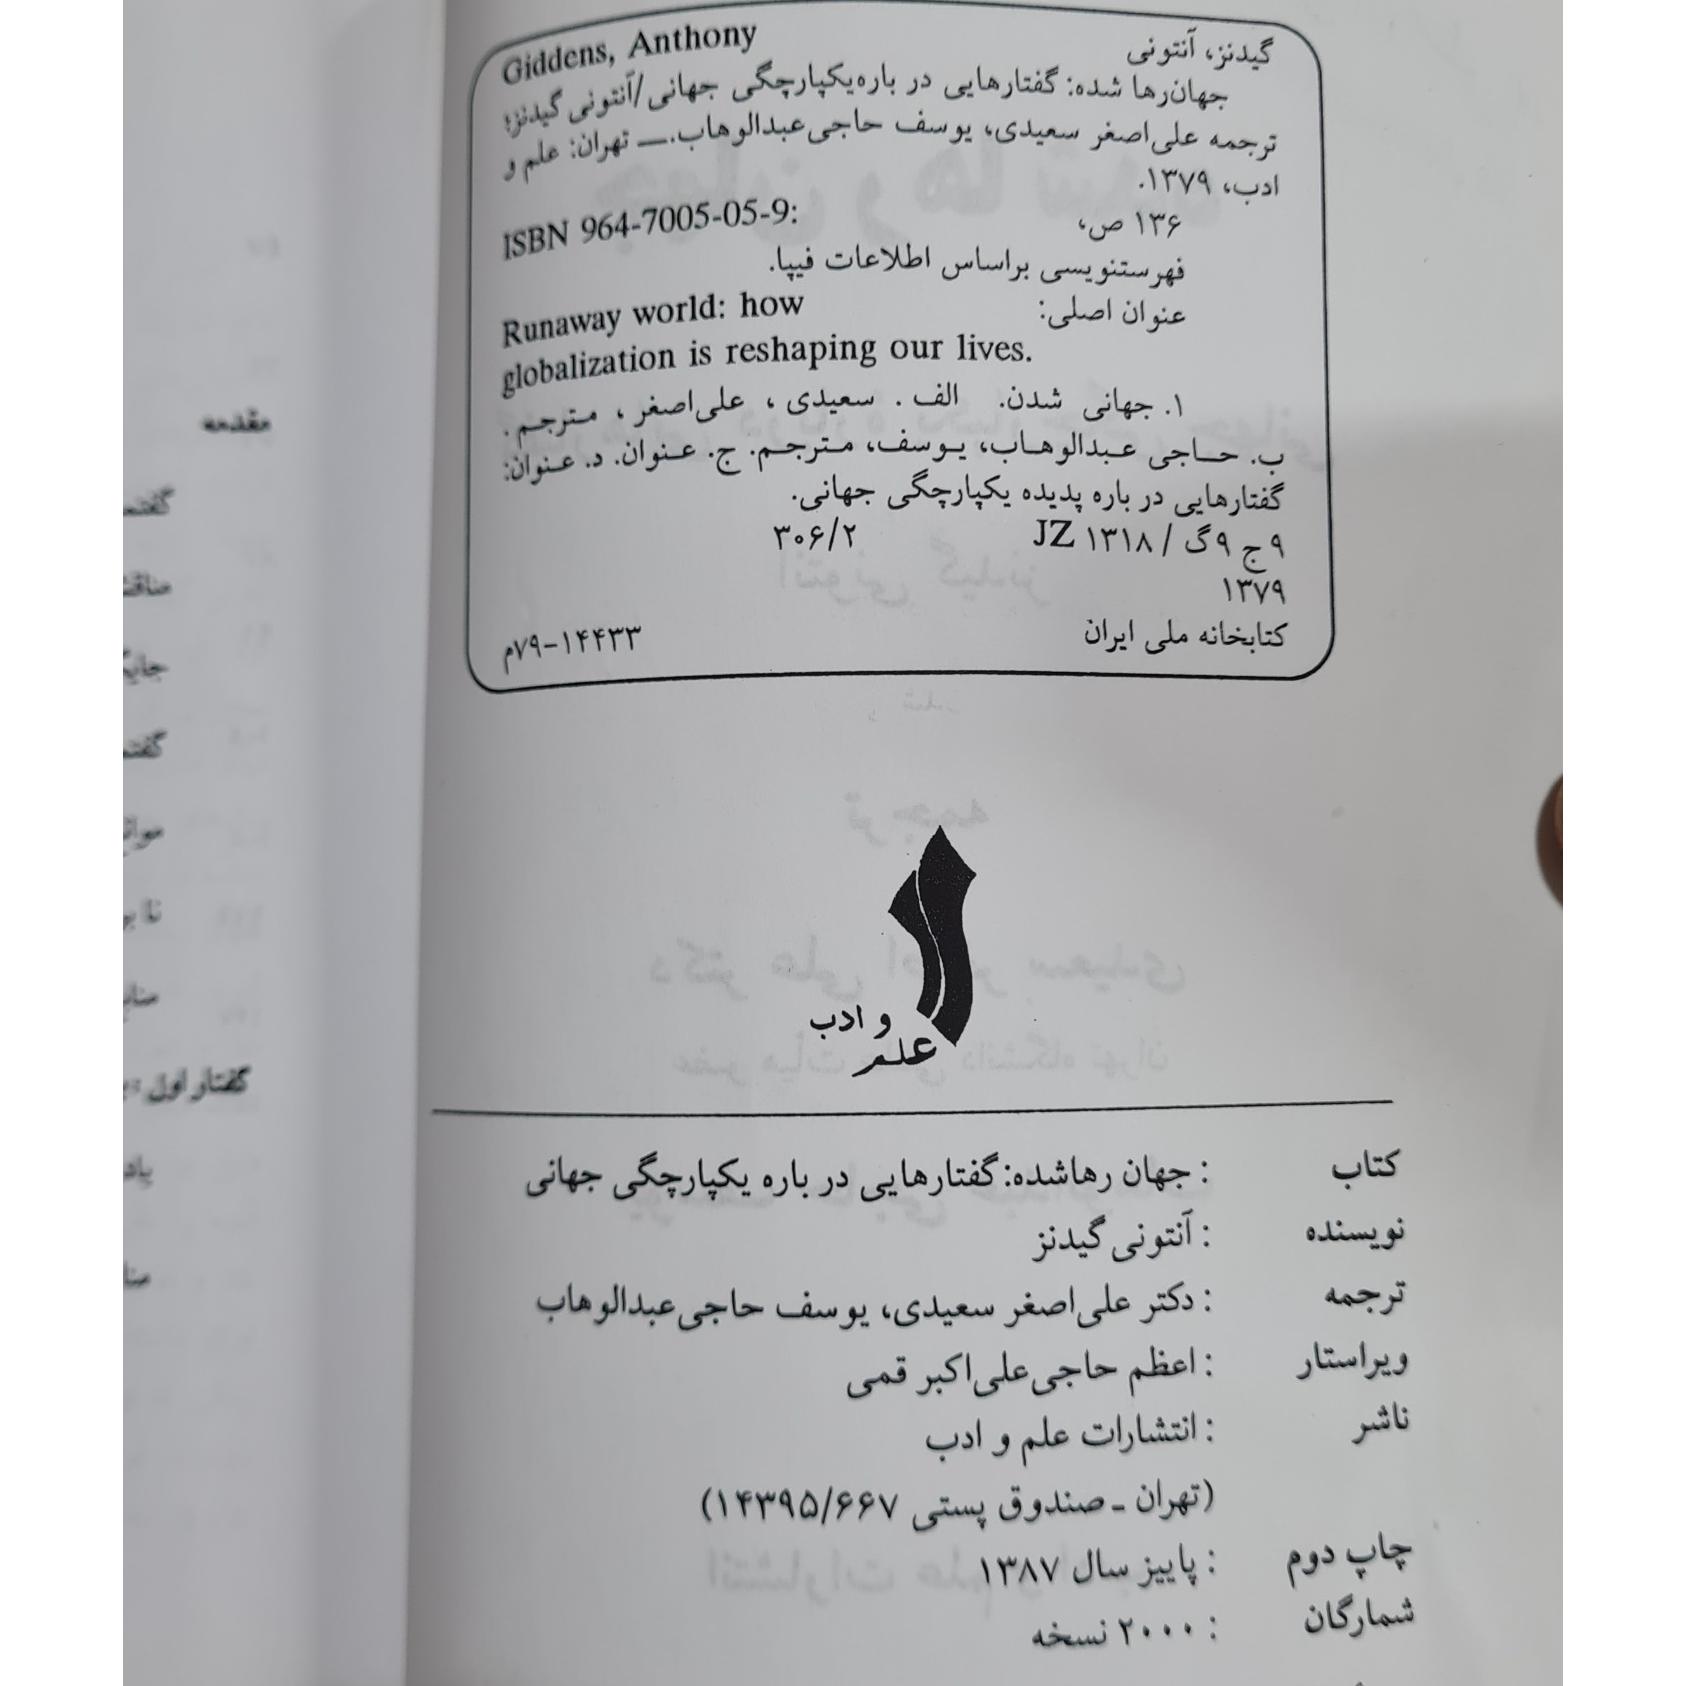 گیدنز، آنتونی Giddens, Anthony
جهان‌رها شده: گفتارهایی در باره‌یکپارچگی جهانی/آنتونی گیدنز؛
ترجمه علی‌اصغر سعیدی، یوسف حاجی‌عبدالوهاب.ـــ تهران: علم و
ادب، ۱۳۷۹.
۱۳۶ ص، ISBN 964-7005-05-9:
فهرستنویسی براساس اطلاعات فیپا.
عنوان اصلی: Runaway world: how
globalization is reshaping our lives.
۱. جهانی شدن. الف . سعیدی ، علی‌اصغر ، مترجم .
ب. حاجی عبدالوهاب، یوسف، مترجم. ج. عنوان. د. عنوان:
گفتارهایی در باره پدیده یکپارچگی جهانی.
۹ ج ۹گ / JZ ۱۳۱۸ ۳۰۶/۲
۱۳۷۹
کتابخانه ملی ایران ۱۴۴۳۳-۷۹م
و ادب
علم
کتاب : جهان رهاشده: گفتارهایی در باره یکپارچگی جهانی
نویسنده : آنتونی گیدنز
ترجمه : دکتر علی‌اصغر سعیدی، یوسف حاجی‌عبدالوهاب
ویراستار : اعظم حاجی‌علی‌اکبر قمی
ناشر : انتشارات علم و ادب
(تهران ـ صندوق پستی ۱۴۳۹۵/۶۶۷)
چاپ دوم : پاییز سال ۱۳۸۷
شمارگان : ۲۰۰۰ نسخه
مقدمه
گفتار اول :